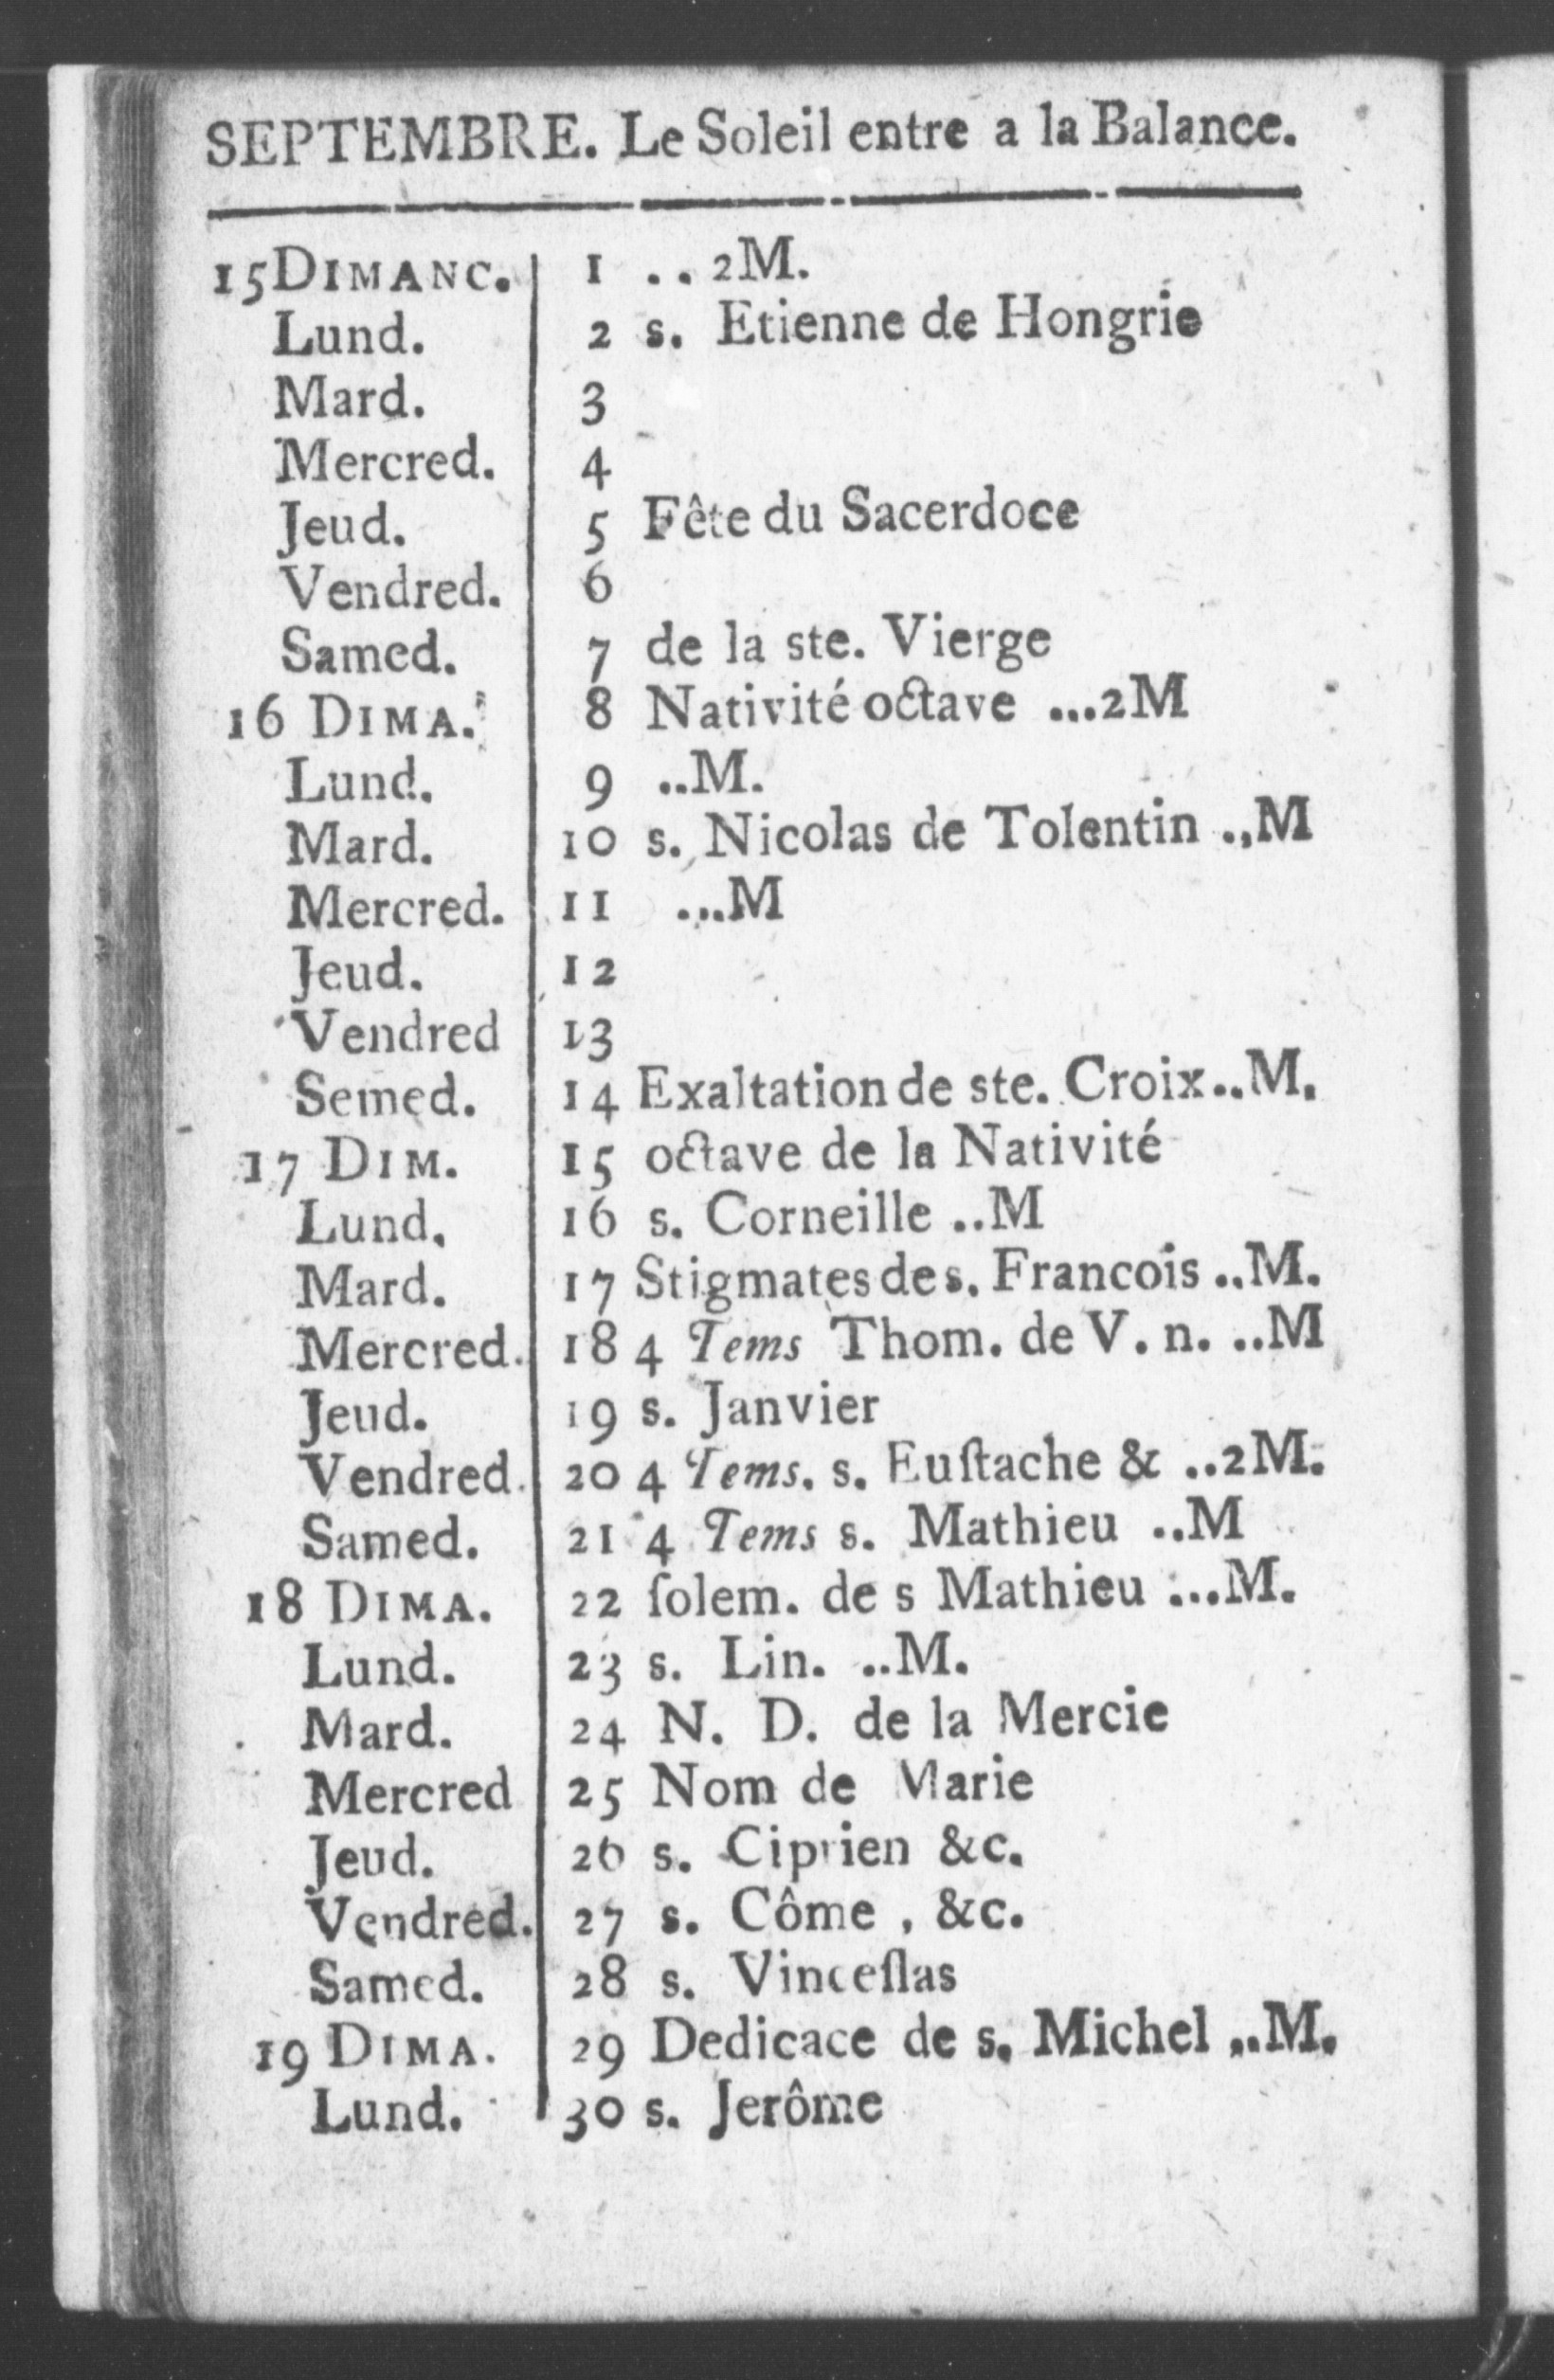 SEPTEMBRE. Le Soleil entre a la Balance.
15 DIMANC. 1 .. 2M.
Lund. 2 s. Etienne de Hongrie
Mard. 3
Mercred. 4
Jeud. 5 Fête du Sacerdoce
Vendred. 6
Samed. 7 de la ste. Vierge
16 DIMA. 8 Nativité octave ...2M
Lund. 9 ..M.
Mard. 10 s. Nicolas de Tolentin .,M
Mercred. 11 ...M
Jeud. 12
Vendred 13
Semed. 14 Exaltation de ste. Croix..M.
17 DIM. 15 octave de la Nativité
Lund. 16 s. Corneille ..M
Mard. 17 Stigmates de s. Francois ..M.
Mercred. 18 4 Tems Thom. de V. n. ..M
Jeud. 19 s. Janvier
Vendred. 20 4 Tems. s. Euſtache & ..2M.
Samed. 21 4 Tems s. Mathieu ..M
18 DIMA. 22 ſolem. de s Mathieu ...M.
Lund. 23 s. Lin. ..M.
Mard. 24 N. D. de la Mercie
Mercred 25 Nom de Marie
Jeud. 26 s. Ciprien &c.
Vendred. 27 s. Côme , &c.
Samed. 28 s. Vinceſlas
19 DIMA. 29 Dedicace de s. Michel ..M.
Lund. 30 s. Jerôme